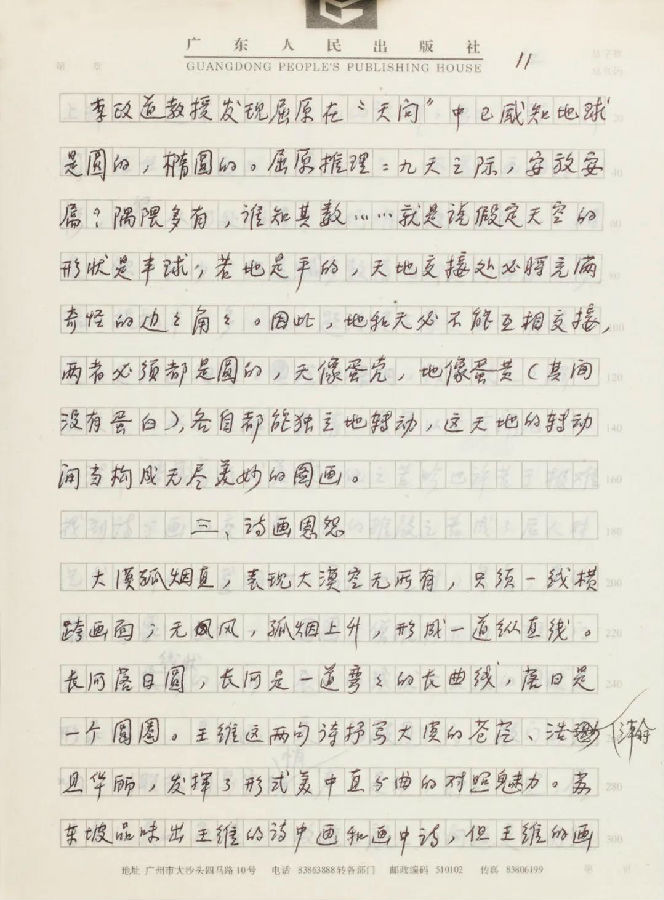 广东人民出版社
11
GUANGDONG PEOPLE'S PUBLISHING HOUSE
李政道教授发现屈原在“天问”中已感知地球
是圆的，椭圆的。屈原推理：九天之际，安放安
属？隅隈多有，谁知其数……就是说假定天空的
形状是半球，若地是平的，天地交接处必将充满
奇怪的边边角角。因此，地和天必不能互相交接，
两者必须都是圆的，天像蛋壳，地像蛋黄（其间
没有蛋白），各自都能独立地转动，这天地的转动
间当构成无尽美妙的图画。
三、诗画恩怨
大漠孤烟直，表现大漠空无所有，只须一线横
跨画面；无风，孤烟上升，形成一道纵直线。
长河落日圆，长河是一道弯弯的长曲线，落日是
一个圆圈。王维这两句诗抒写大漠的苍茫、浩瀚
且华丽，发挥了形式美中直与曲的对照魅力。苏
东坡品味出王维的诗中画和画中诗，但王维的画
20
40
60
80
100
120
140
160
180
200
220
240
260
280
300
地址 广州市大沙头四马路10号 电话 83863888转各部门 邮政编码 510102 传真 83806199